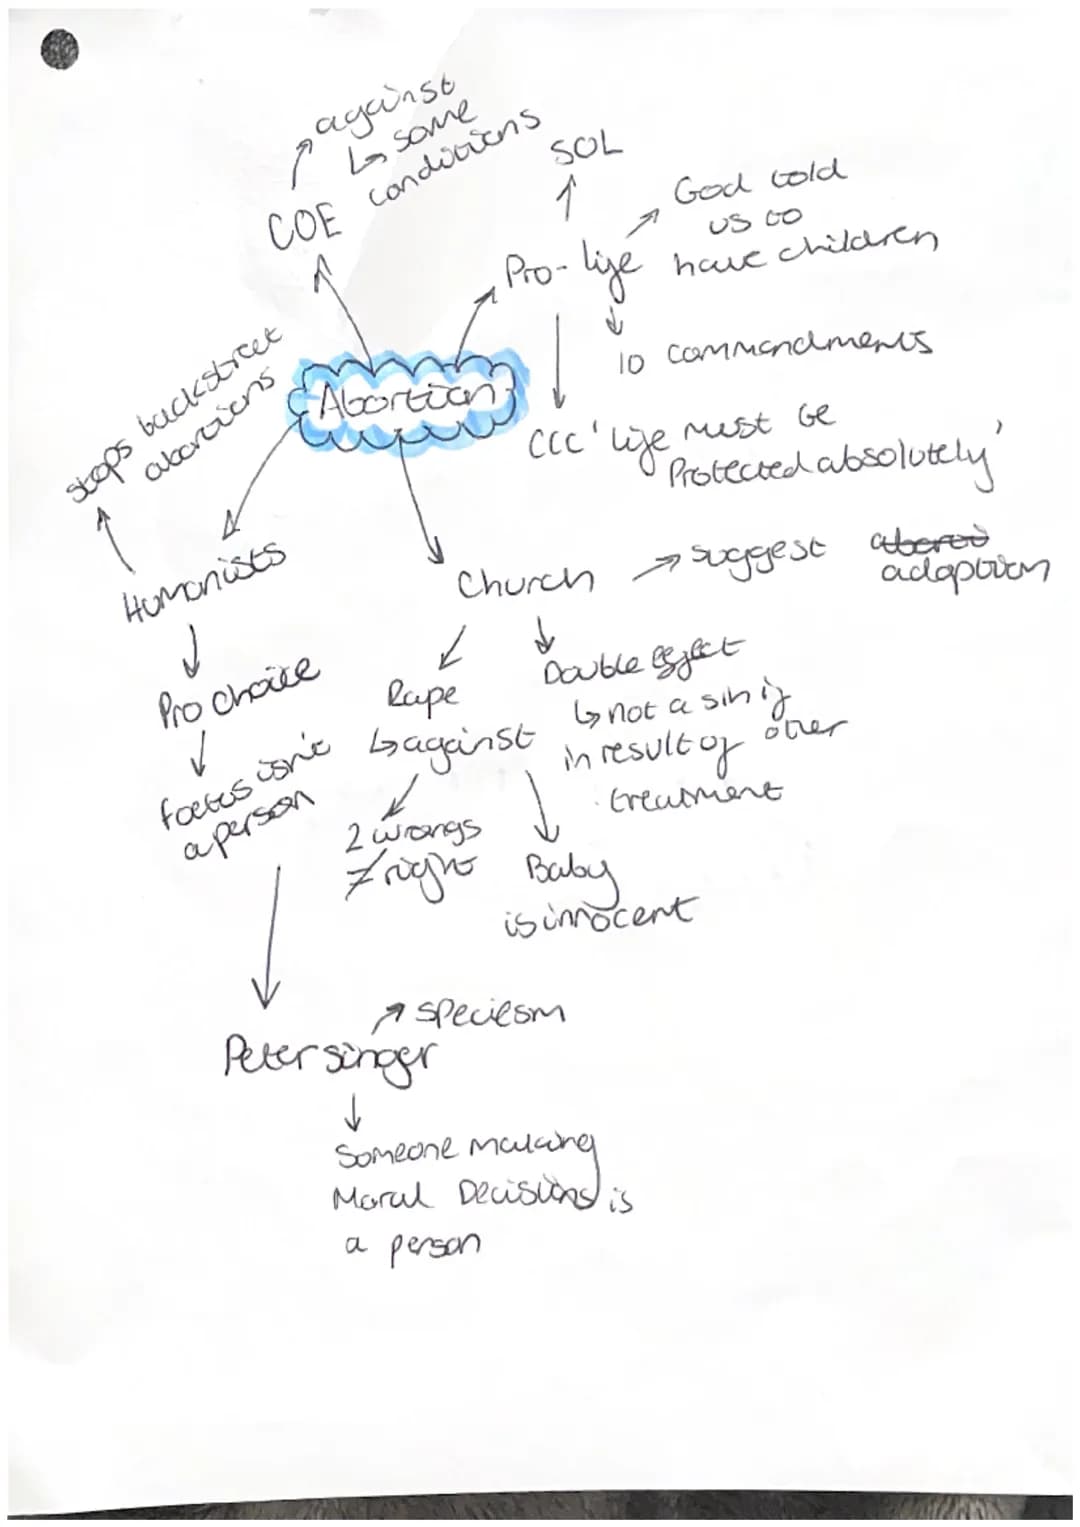 against
↳ some
conditions
COE
SOL
God told
us to
have children
Pro-life
10 commandments
CCC 'life must be
Protected absolutely'
Abortion
stops backstreet
abortions
Humanists
Pro choice
foetus isn't
a person
Church
suggest
adoption
Double effect
↳ not a sin if
in result of other
treatment
Rape
↳ against
2 wrongs
≠ right
Baby
is innocent
Peter singer
speciesm
Someone making
Moral Decisions is
a person